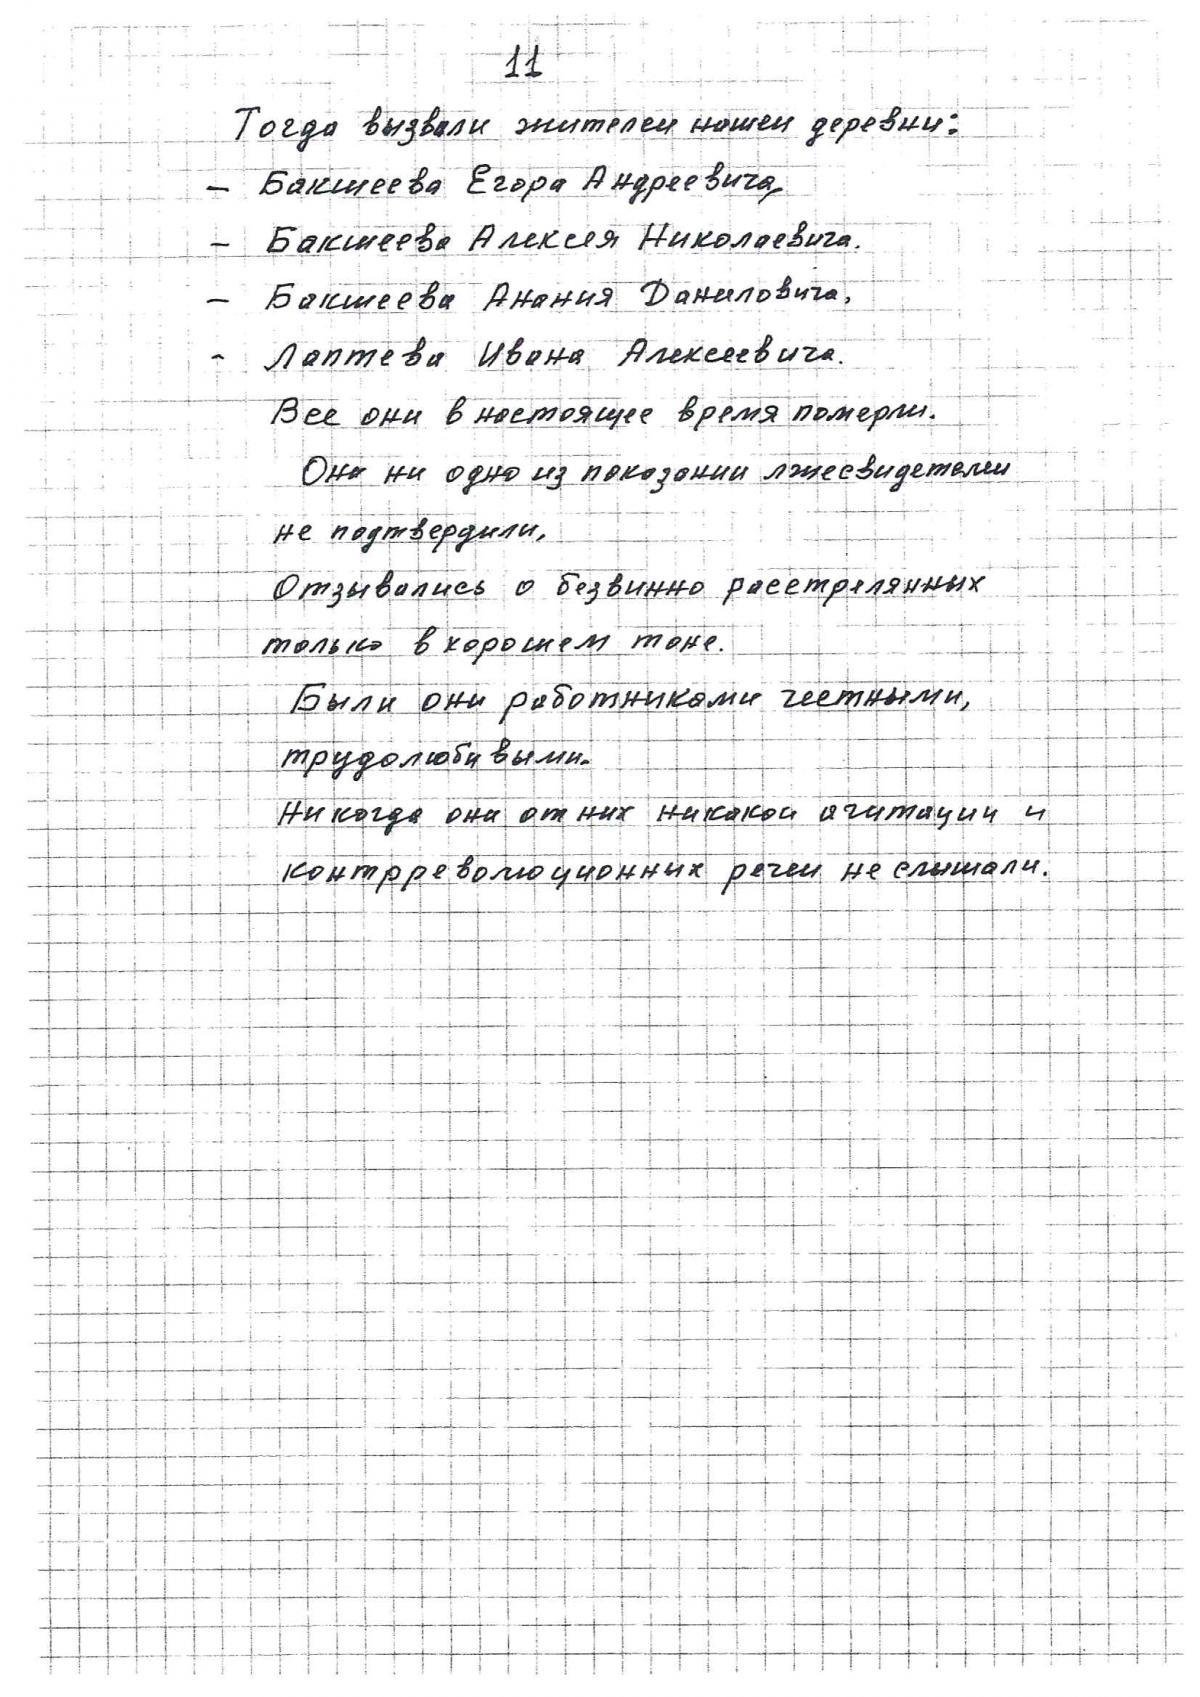 11
Тогда вызвали жителей нашей деревни:
- Бакшеева Егора Андреевича,
- Бакшеева Алексея Николаевича.
- Бакшеева Анания Даниловича,
- Лаптева Ивана Алексеевича.
Все они в настоящее время померли.
Они ни одно из показании лжесвидетелеи
не подтвердили,
Отзывались о безвинно расстрелянных
только в хорошем тоне.
Были они работниками честными,
трудолюбивыми.
Никогда они от них никакой агитации и
контрреволюционных речеи не слышали.